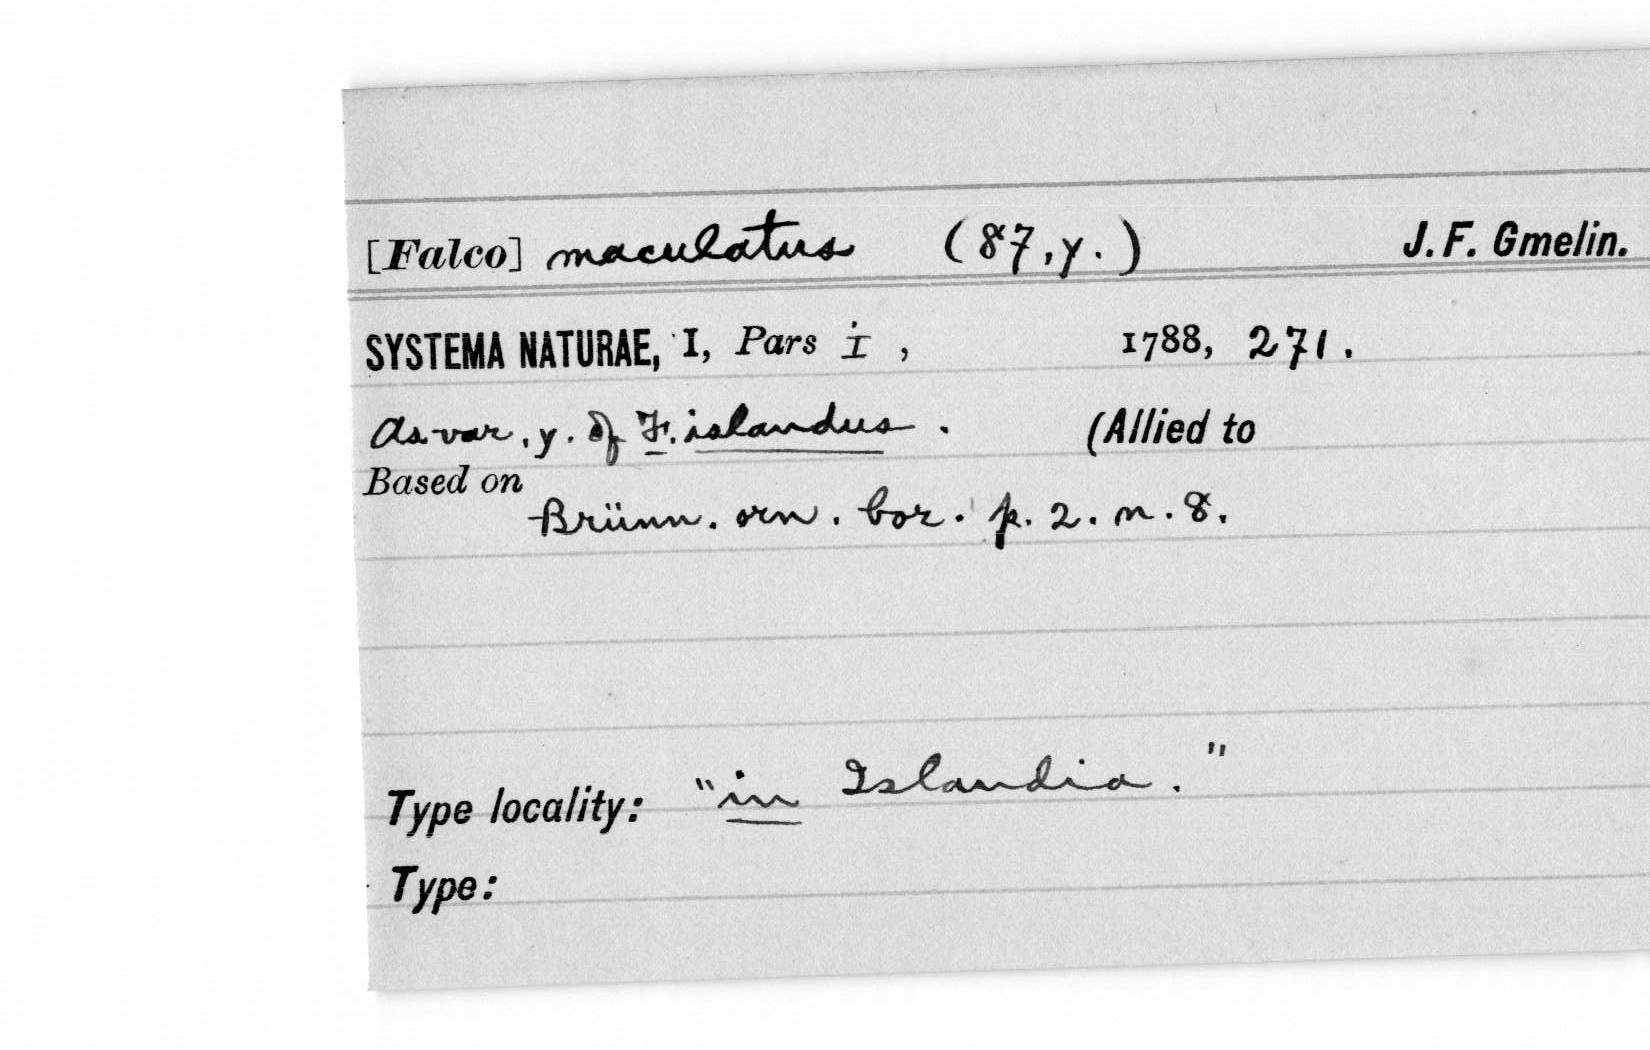 [Falco] maculatus (87, y.) J. F. Gmelin.
SYSTEMA NATURAE, I, Pars I, 1788, 271.
As var. y. of F. islandus. (Allied to
Based on
Brünn. orn. bor. p. 2. n. 8.
Type locality: "in Islandia."
Type: